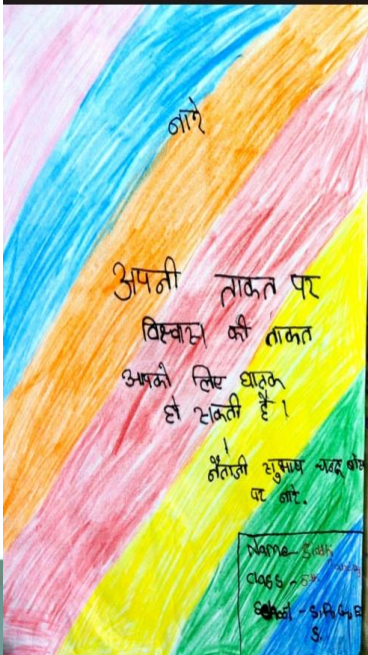 नारे
अपनी ताकत पर
विश्वास की ताकत
आपको लिए घातक
हो सकती है।
नेताजी सुभाष चन्द्र बोस
पर नारे.
Name - Siddh
Class - 5th
School -